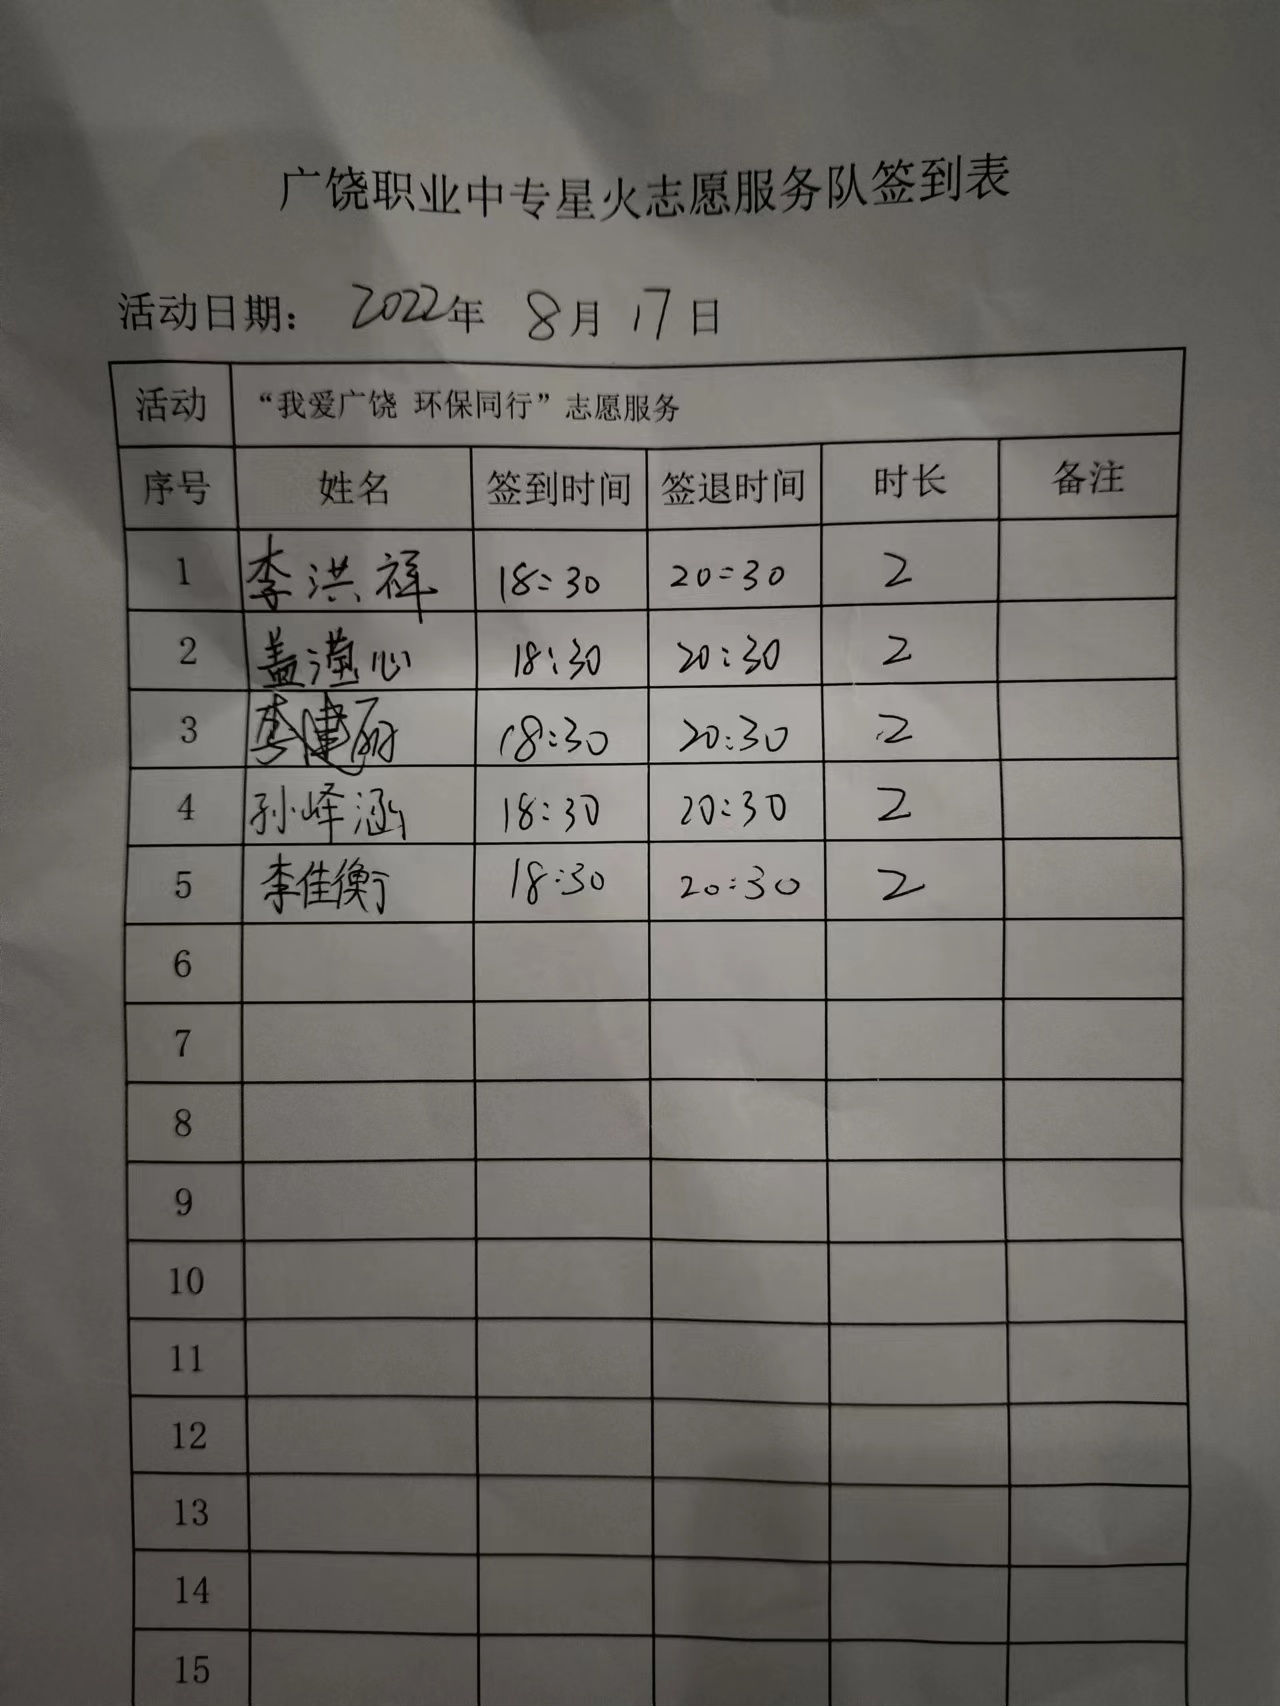 广饶职业中专星火志愿服务队签到表
活动日期： 2022年 8月 17日
活动 “我爱广饶 环保同行”志愿服务
序号 姓名 签到时间 签退时间 时长 备注
1 李洪祥 18:30 20:30 2
2 盖滢心 18:30 20:30 2
3 李建丽 18:30 20:30 2
4 孙峄涵 18:30 20:30 2
5 李佳衡 18:30 20:30 2
6
7
8
9
10
11
12
13
14
15